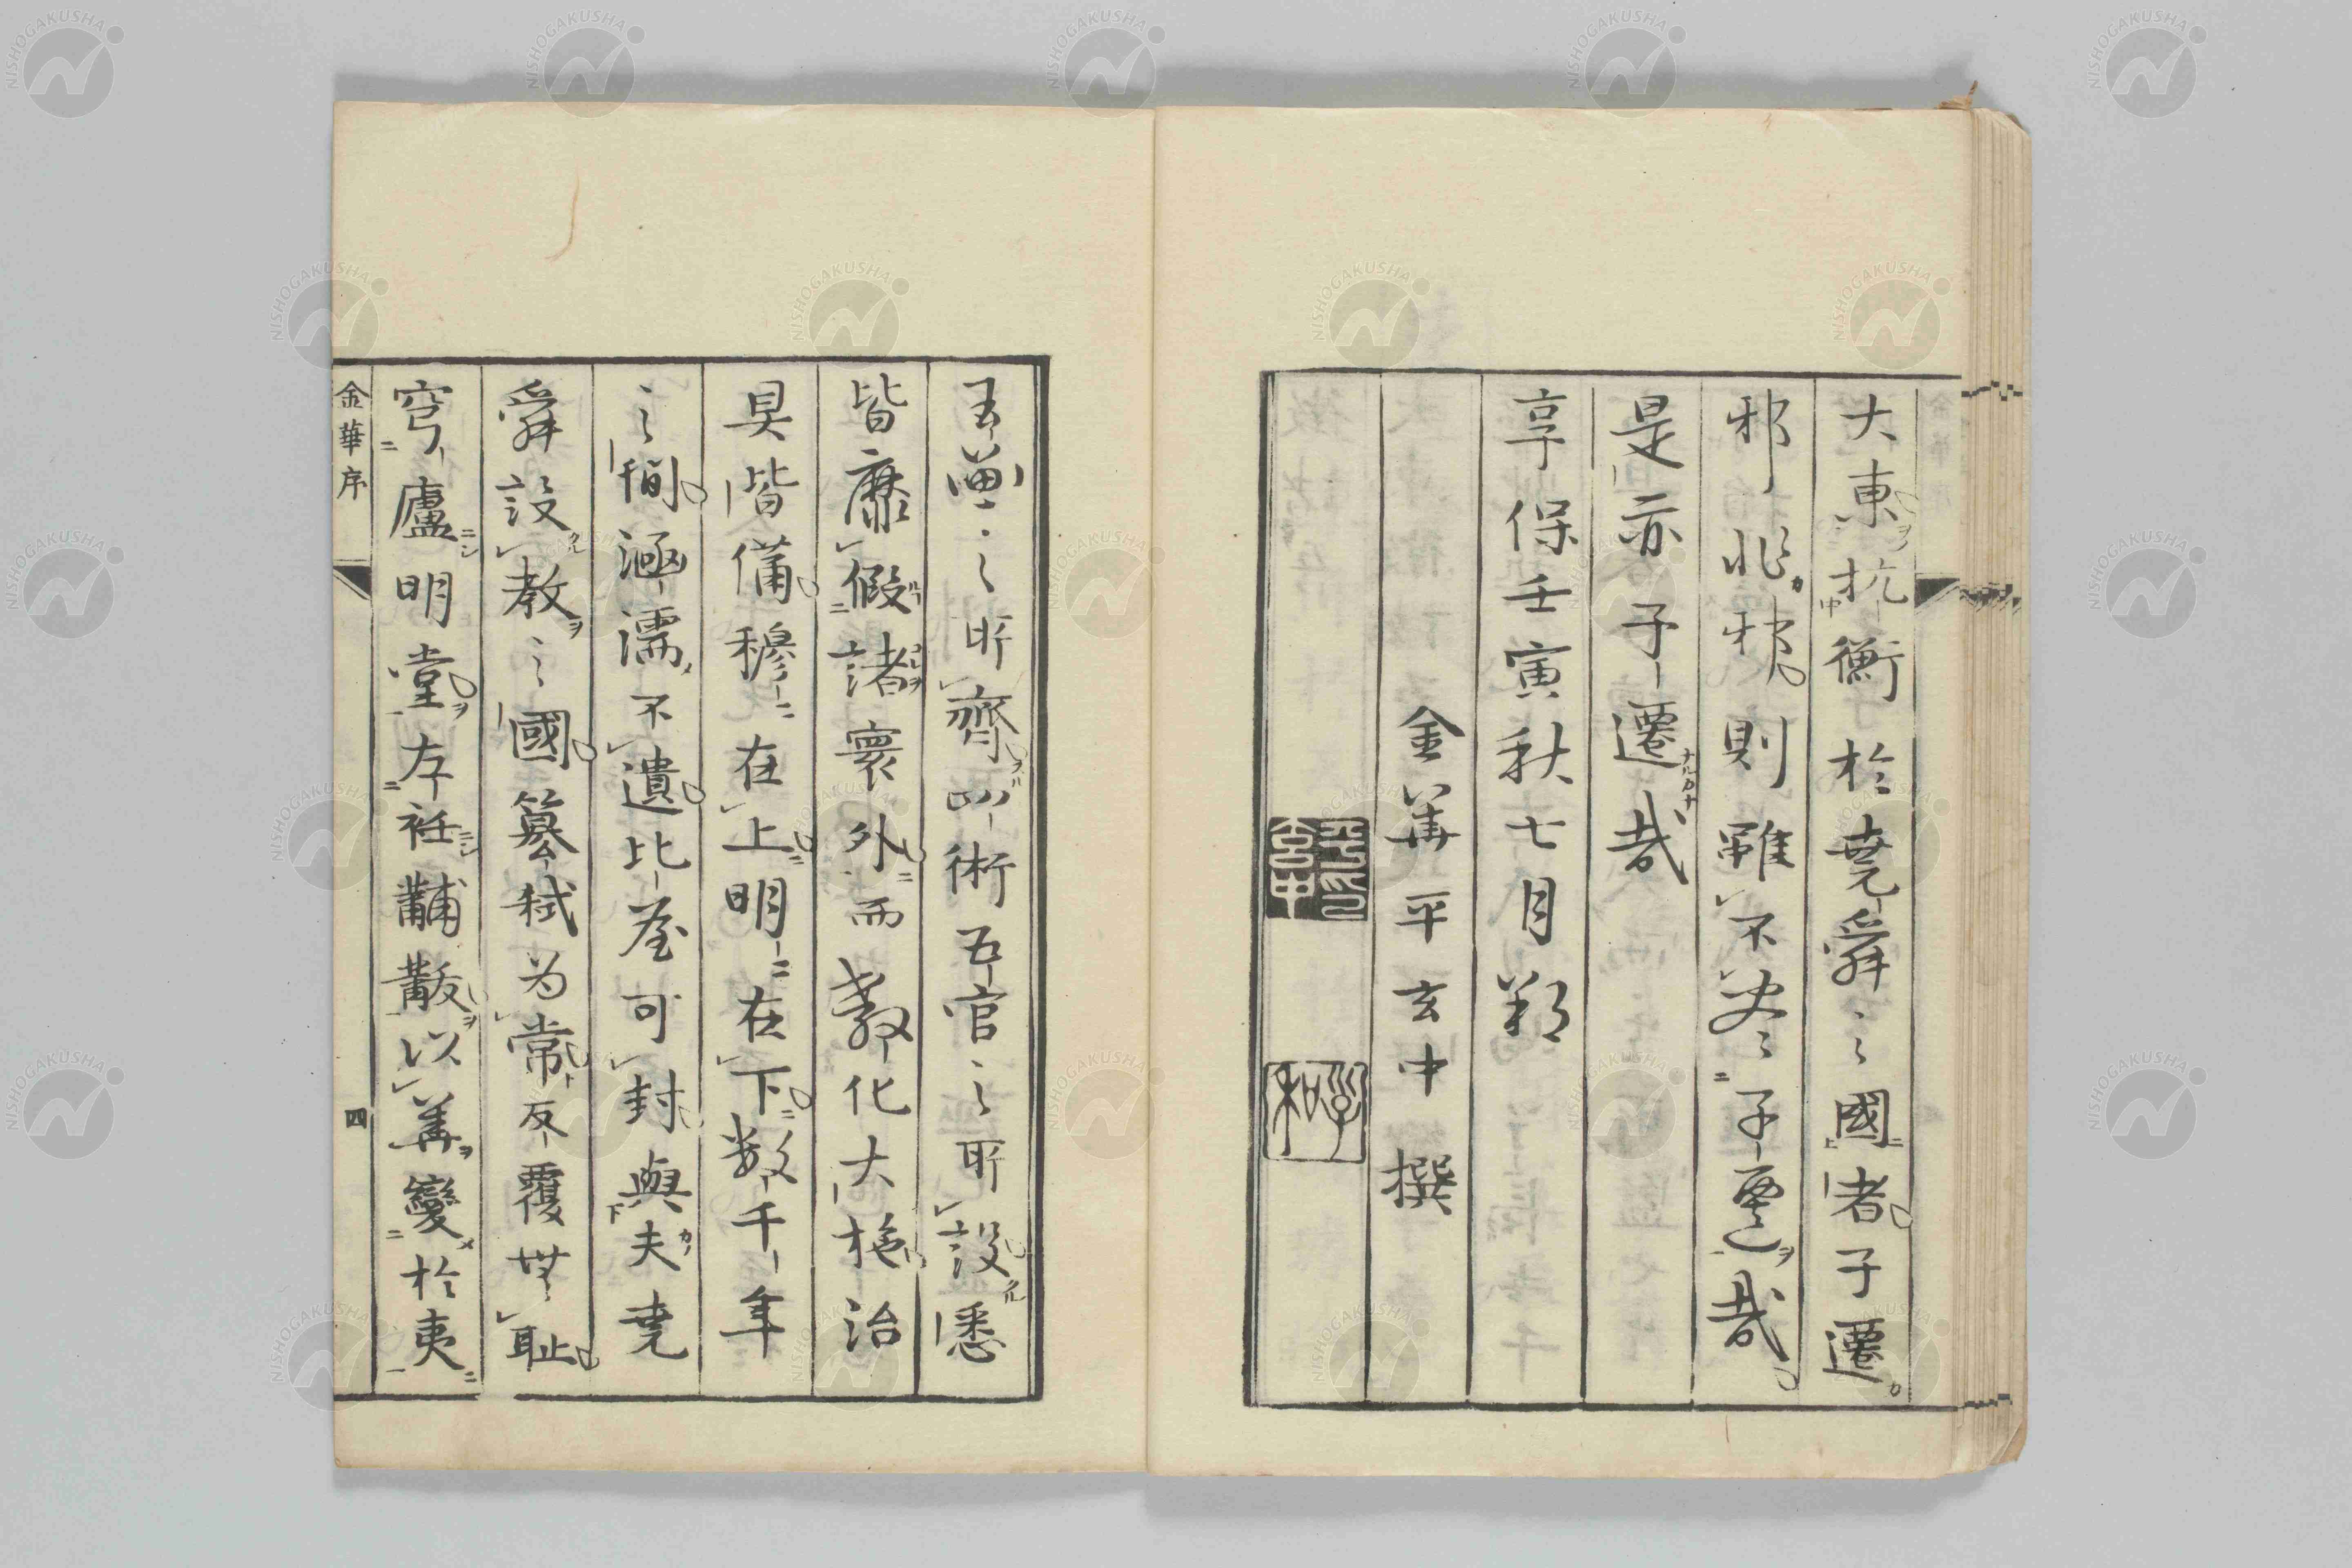 大東抗衡於堯舜之國者子遷
邪非邪則雖不盡子遷哉
是亦子遷哉
享保壬寅秋七月朔
金華平玄中撰
王薰之所齊四術五官之所設悉
皆靡假諸寰外而敷化大施治
具皆備穆穆在上明明在下數千年
之間涵濡不遺比屋可封與夫堯
舜設教之國篡弑為常反覆無恥
穹廬明堂左衽黼黻以華變於夷
金華序
四
NISHOGAKUSHA